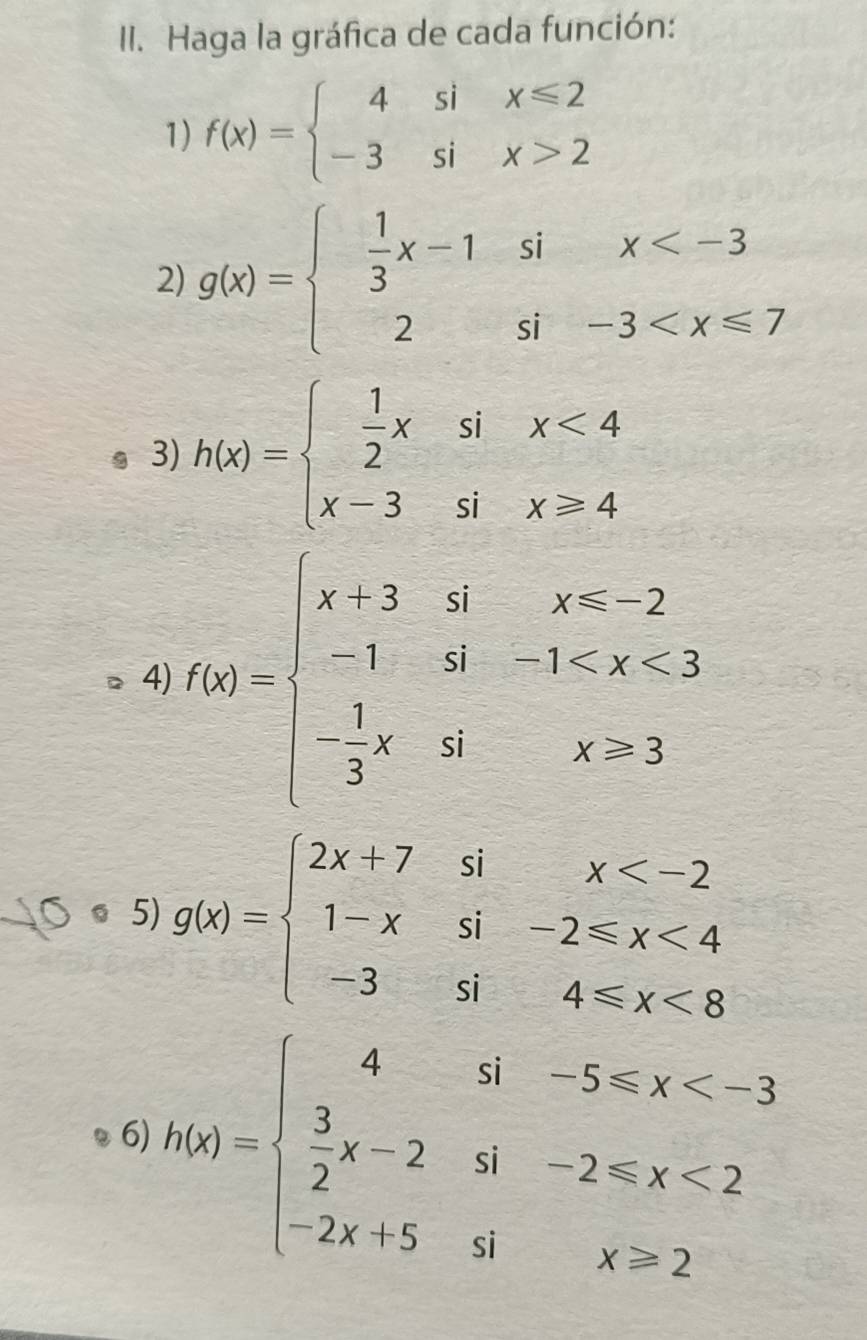 II. Haga la gráfica de cada función:
1) f(x) = { 4 si x ⩽ 2
− 3 si x > 2
2) g(x) = { 1/3 x − 1 si x < −3
2 si −3 < x ⩽ 7
3) h(x) = { 1/2 x si x < 4
x − 3 si x ⩾ 4
4) f(x) = { x + 3 si x ⩽ −2
−1 si −1 < x < 3
−1/3 x si x ⩾ 3
5) g(x) = { 2x + 7 si x < −2
1 − x si −2 ⩽ x < 4
−3 si 4 ⩽ x < 8
6) h(x) = { 4 si −5 ⩽ x < −3
3/2 x − 2 si −2 ⩽ x < 2
−2x + 5 si x ⩾ 2